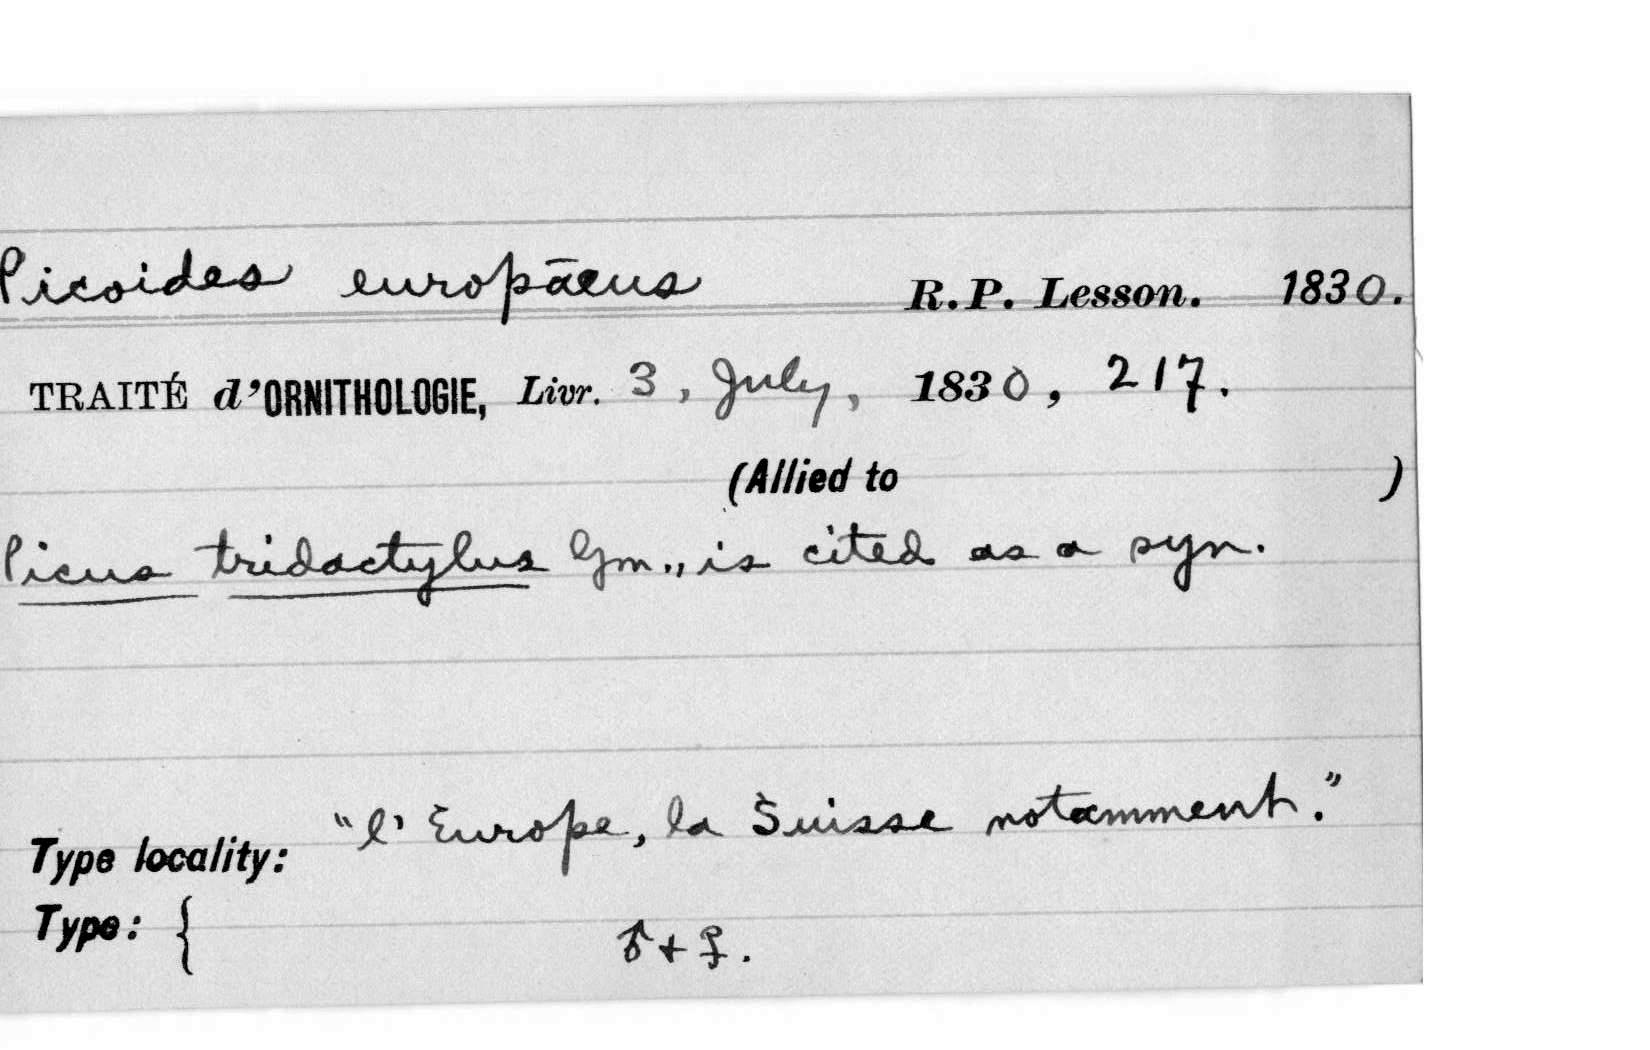 Picoides europāeus R.P. Lesson. 1830.
TRAITÉ d'ORNITHOLOGIE, Livr. 3, July, 1830, 217.
(Allied to )
Picus tridactylus Gm., is cited as a syn.
Type locality: "l' Europe, la Suisse notamment."
Type: { ♂ + ♀.